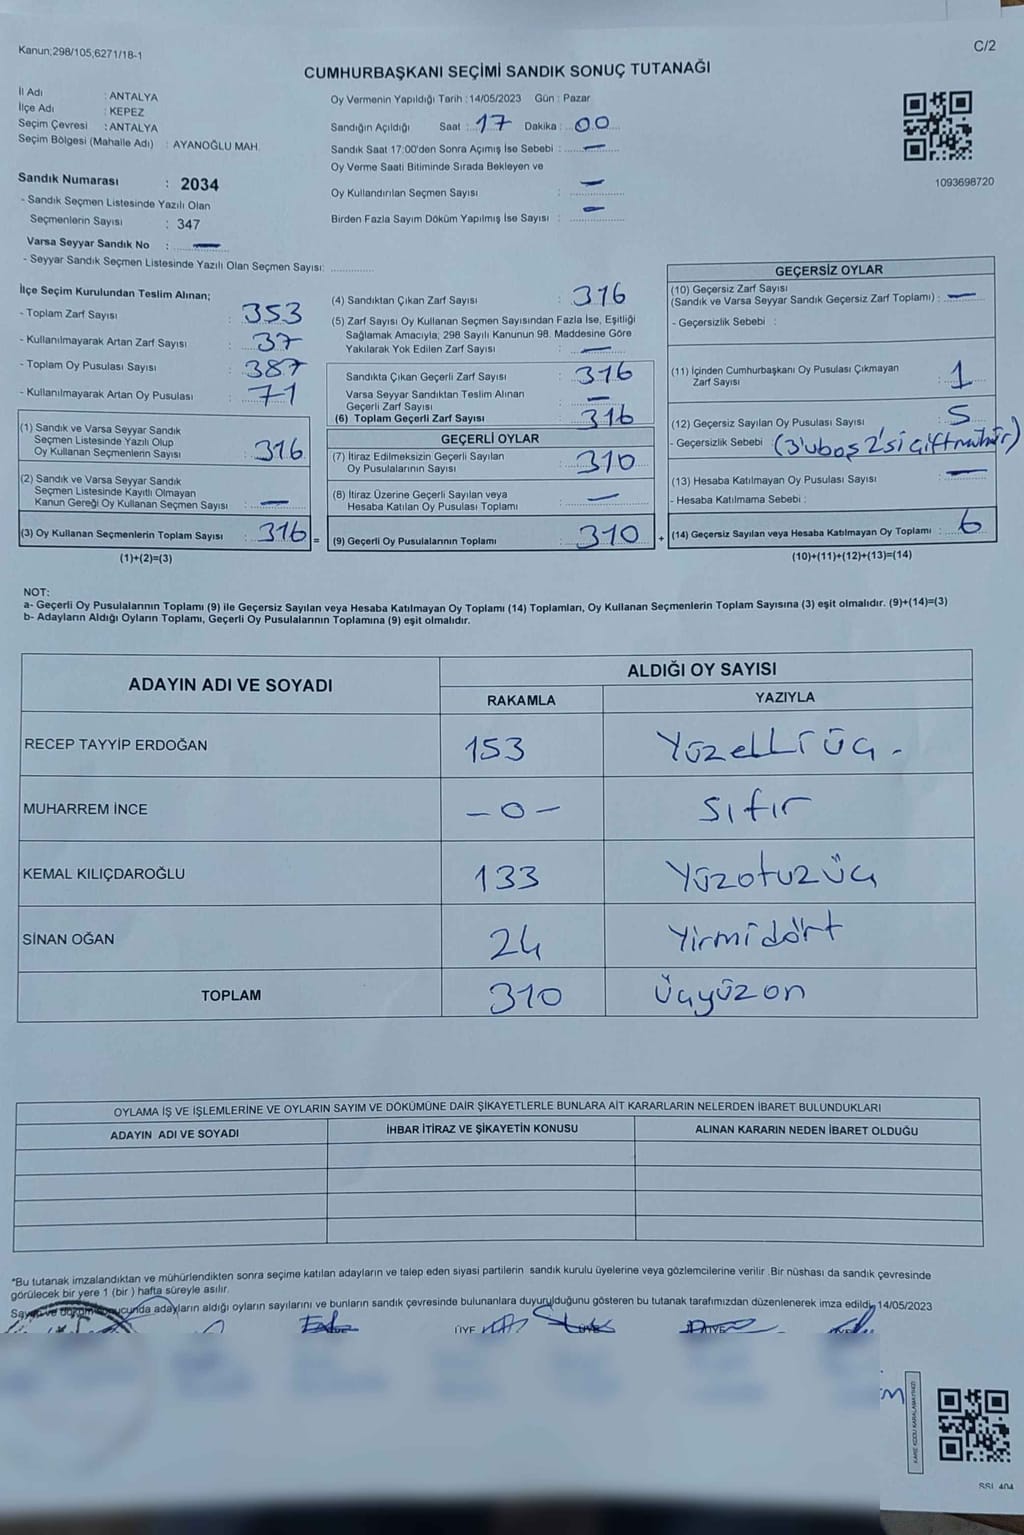 Kanun;298/105,6271/18-1
C/2
CUMHURBAŞKANI SEÇİMİ SANDIK SONUÇ TUTANAĞI
İl Adı : ANTALYA
İlçe Adı : KEPEZ
Seçim Çevresi : ANTALYA
Seçim Bölgesi (Mahalle Adı) : AYANOĞLU MAH.
Sandık Numarası : 2034
- Sandık Seçmen Listesinde Yazılı Olan
Seçmenlerin Sayısı : 347
Varsa Seyyar Sandık No : —
- Seyyar Sandık Seçmen Listesinde Yazılı Olan Seçmen Sayısı: ..............
Oy Vermenin Yapıldığı Tarih : 14/05/2023 Gün : Pazar
Sandığın Açıldığı Saat : 17 Dakika : 00
Sandık Saat 17:00'den Sonra Açımış İse Sebebi : —
Oy Verme Saati Bitiminde Sırada Bekleyen ve
Oy Kullandırılan Seçmen Sayısı : —
Birden Fazla Sayım Döküm Yapılmış İse Sayısı : —
1093698720
İlçe Seçim Kurulundan Teslim Alınan;
- Toplam Zarf Sayısı : 353
- Kullanılmayarak Artan Zarf Sayısı : 37
- Toplam Oy Pusulası Sayısı : 387
- Kullanılmayarak Artan Oy Pusulası : 71
(1) Sandık ve Varsa Seyyar Sandık
Seçmen Listesinde Yazılı Olup
Oy Kullanan Seçmenlerin Sayısı : 316
(2) Sandık ve Varsa Seyyar Sandık
Seçmen Listesinde Kayıtlı Olmayan
Kanun Gereği Oy Kullanan Seçmen Sayısı : —
(3) Oy Kullanan Seçmenlerin Toplam Sayısı : 316 =
(1)+(2)=(3)
(4) Sandıktan Çıkan Zarf Sayısı : 316
(5) Zarf Sayısı Oy Kullanan Seçmen Sayısından Fazla İse, Eşitliği
Sağlamak Amacıyla; 298 Sayılı Kanunun 98. Maddesine Göre
Yakılarak Yok Edilen Zarf Sayısı : —
Sandıkta Çıkan Geçerli Zarf Sayısı : 316
Varsa Seyyar Sandıktan Teslim Alınan
Geçerli Zarf Sayısı : —
(6) Toplam Geçerli Zarf Sayısı : 316
GEÇERLİ OYLAR
(7) İtiraz Edilmeksizin Geçerli Sayılan
Oy Pusulalarının Sayısı : 310
(8) İtiraz Üzerine Geçerli Sayılan veya
Hesaba Katılan Oy Pusulası Toplamı : —
(9) Geçerli Oy Pusulalarının Toplamı : 310 +
GEÇERSİZ OYLAR
(10) Geçersiz Zarf Sayısı
(Sandık ve Varsa Seyyar Sandık Geçersiz Zarf Toplamı) : —
- Geçersizlik Sebebi :
(11) İçinden Cumhurbaşkanı Oy Pusulası Çıkmayan
Zarf Sayısı : 1
(12) Geçersiz Sayılan Oy Pusulası Sayısı : 5
- Geçersizlik Sebebi (3'ü boş 2'si çift mühür)
(13) Hesaba Katılmayan Oy Pusulası Sayısı : —
- Hesaba Katılmama Sebebi :
(14) Geçersiz Sayılan veya Hesaba Katılmayan Oy Toplamı : 6
(10)+(11)+(12)+(13)=(14)
NOT:
a- Geçerli Oy Pusulalarının Toplamı (9) ile Geçersiz Sayılan veya Hesaba Katılmayan Oy Toplamı (14) Toplamları, Oy Kullanan Seçmenlerin Toplam Sayısına (3) eşit olmalıdır. (9)+(14)=(3)
b- Adayların Aldığı Oyların Toplamı, Geçerli Oy Pusulalarının Toplamına (9) eşit olmalıdır.
ADAYIN ADI VE SOYADI
ALDIĞI OY SAYISI
RAKAMLA YAZIYLA
RECEP TAYYİP ERDOĞAN 153 Yüzelli üç -
MUHARREM İNCE -0- Sıfır
KEMAL KILIÇDAROĞLU 133 Yüzotuzüç
SİNAN OĞAN 24 Yirmidört
TOPLAM 310 Üçyüzon
OYLAMA İŞ VE İŞLEMLERİNE VE OYLARIN SAYIM VE DÖKÜMÜNE DAİR ŞİKAYETLERLE BUNLARA AİT KARARLARIN NELERDEN İBARET BULUNDUKLARI
ADAYIN ADI VE SOYADI İHBAR İTİRAZ VE ŞİKAYETİN KONUSU ALINAN KARARIN NEDEN İBARET OLDUĞU
*Bu tutanak imzalandıktan ve mühürlendikten sonra seçime katılan adayların ve talep eden siyasi partilerin sandık kurulu üyelerine veya gözlemcilerine verilir. Bir nüshası da sandık çevresinde
görülecek bir yere 1 (bir ) hafta süreyle asılır.
Sayım ve döküm sonucunda adayların aldığı oyların sayılarını ve bunların sandık çevresinde bulunanlara duyurulduğunu gösteren bu tutanak tarafımızdan düzenlenerek imza edildi. 14/05/2023
ÜYE ÜYE ÜYE
KARE KODU KARALAMAYINIZ!
SSL 404